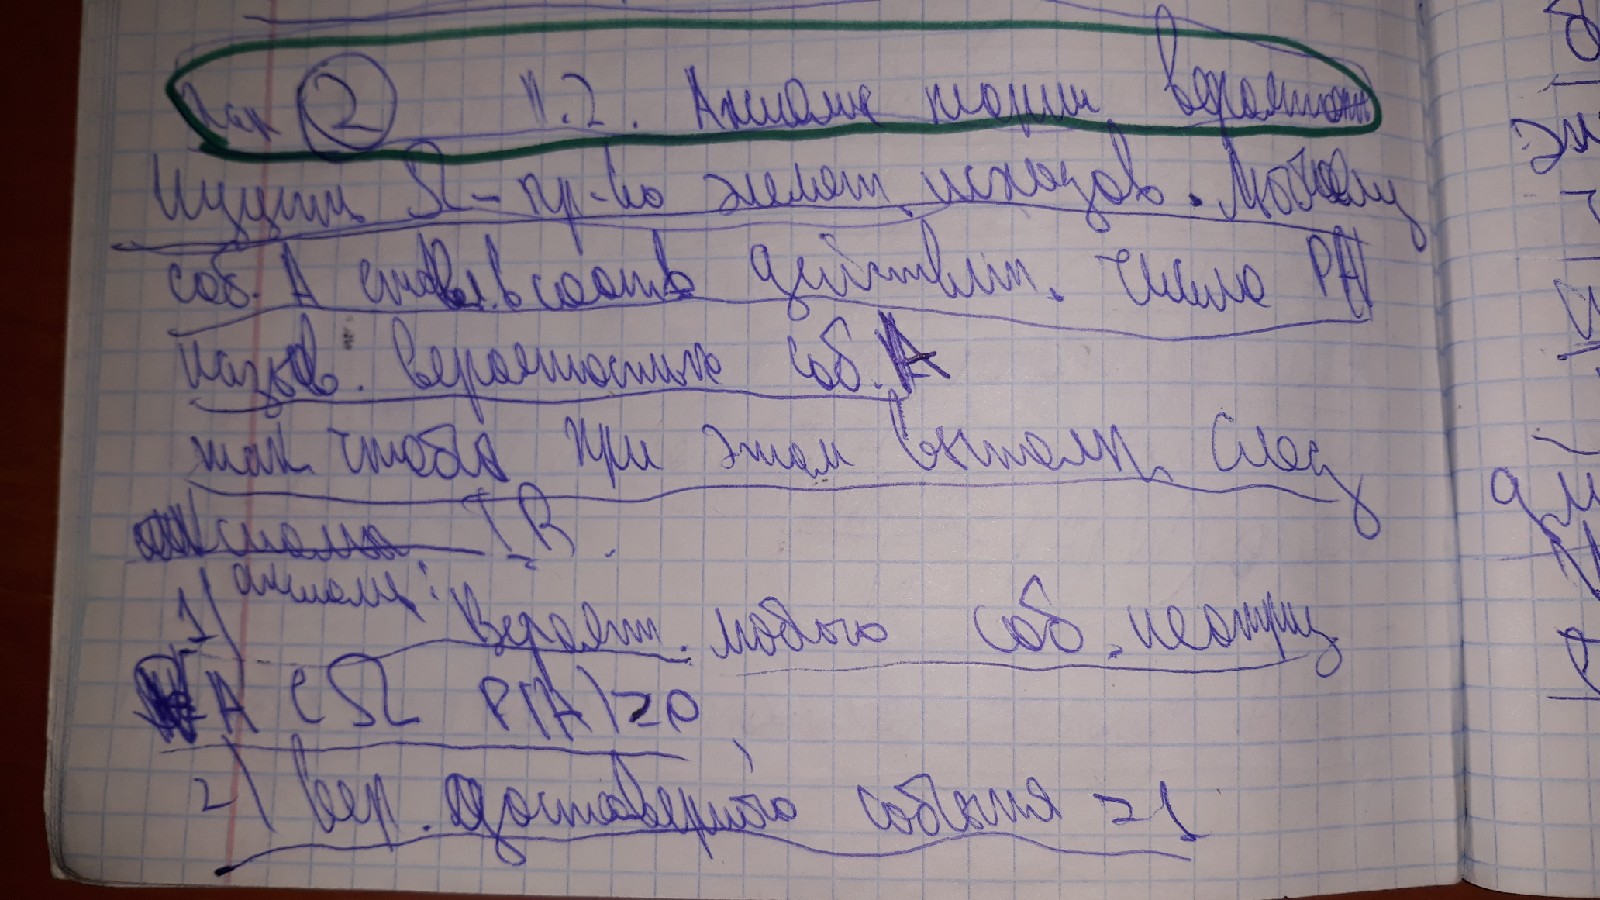 Лек 2 п.2. Аксиомы теории вероятн
Изучим Ω - пр-во элемент исходов. Любому
соб. A ставил. в соотв действит. число P(A)
назыв. вероятностью соб. A
так чтобы при этом выполн. след
аксиома T.B.
1) аксиомы: Вероятн. любого соб. неотриц
A ⊂ Ω P(A) ≥ 0
2) вер. достоверного события = 1